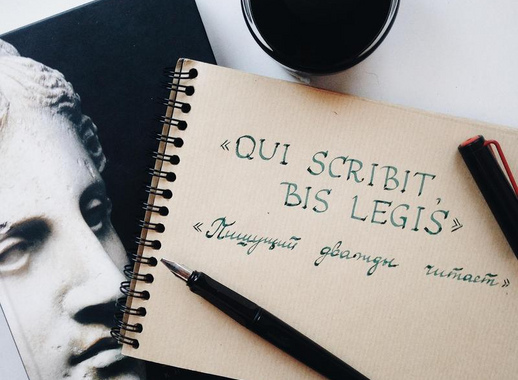 «QUI SCRIBIT,
BIS LEGIS»
«Пишущий дважды читает»